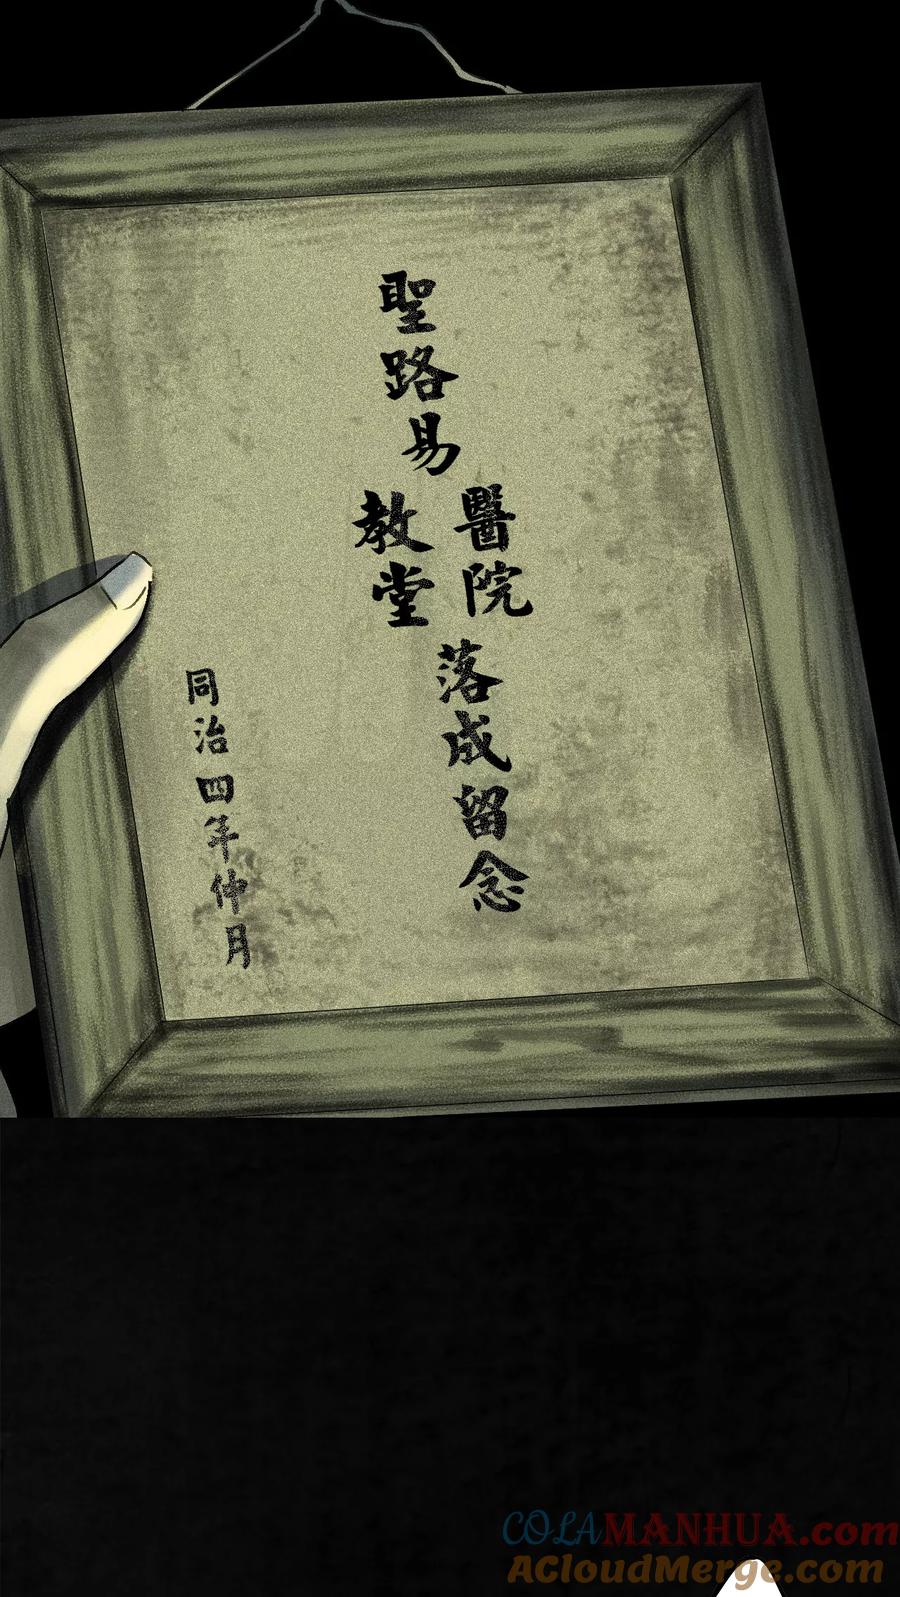 聖路易
醫院
教堂
落成留念
同治四年仲月
COLAMANHUA.com
ACloudMerge.com